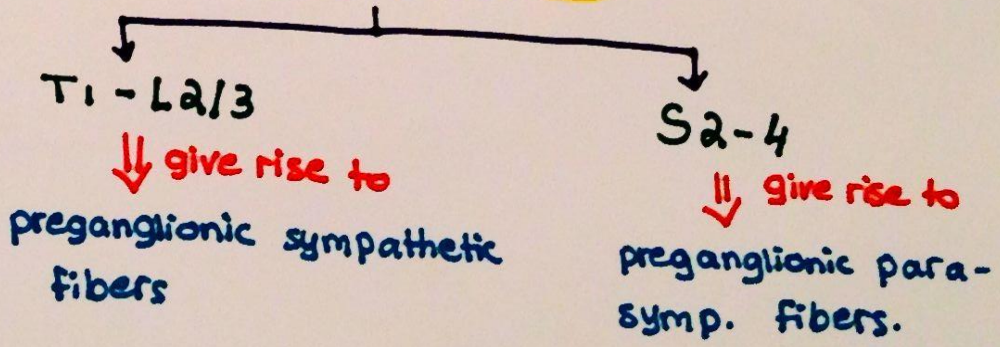 T1 - L2/3
give rise to
preganglionic sympathetic
fibers
S2-4
give rise to
preganglionic para-
symp. fibers.